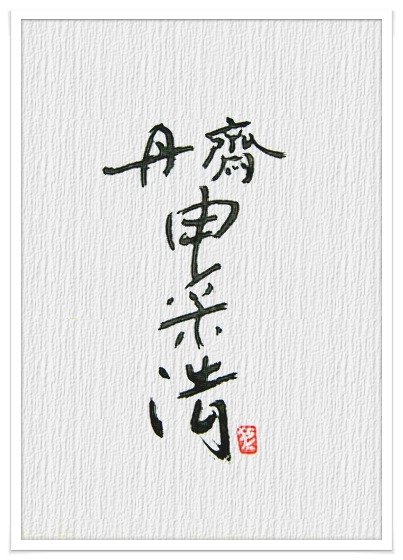 丹齋
申采浩